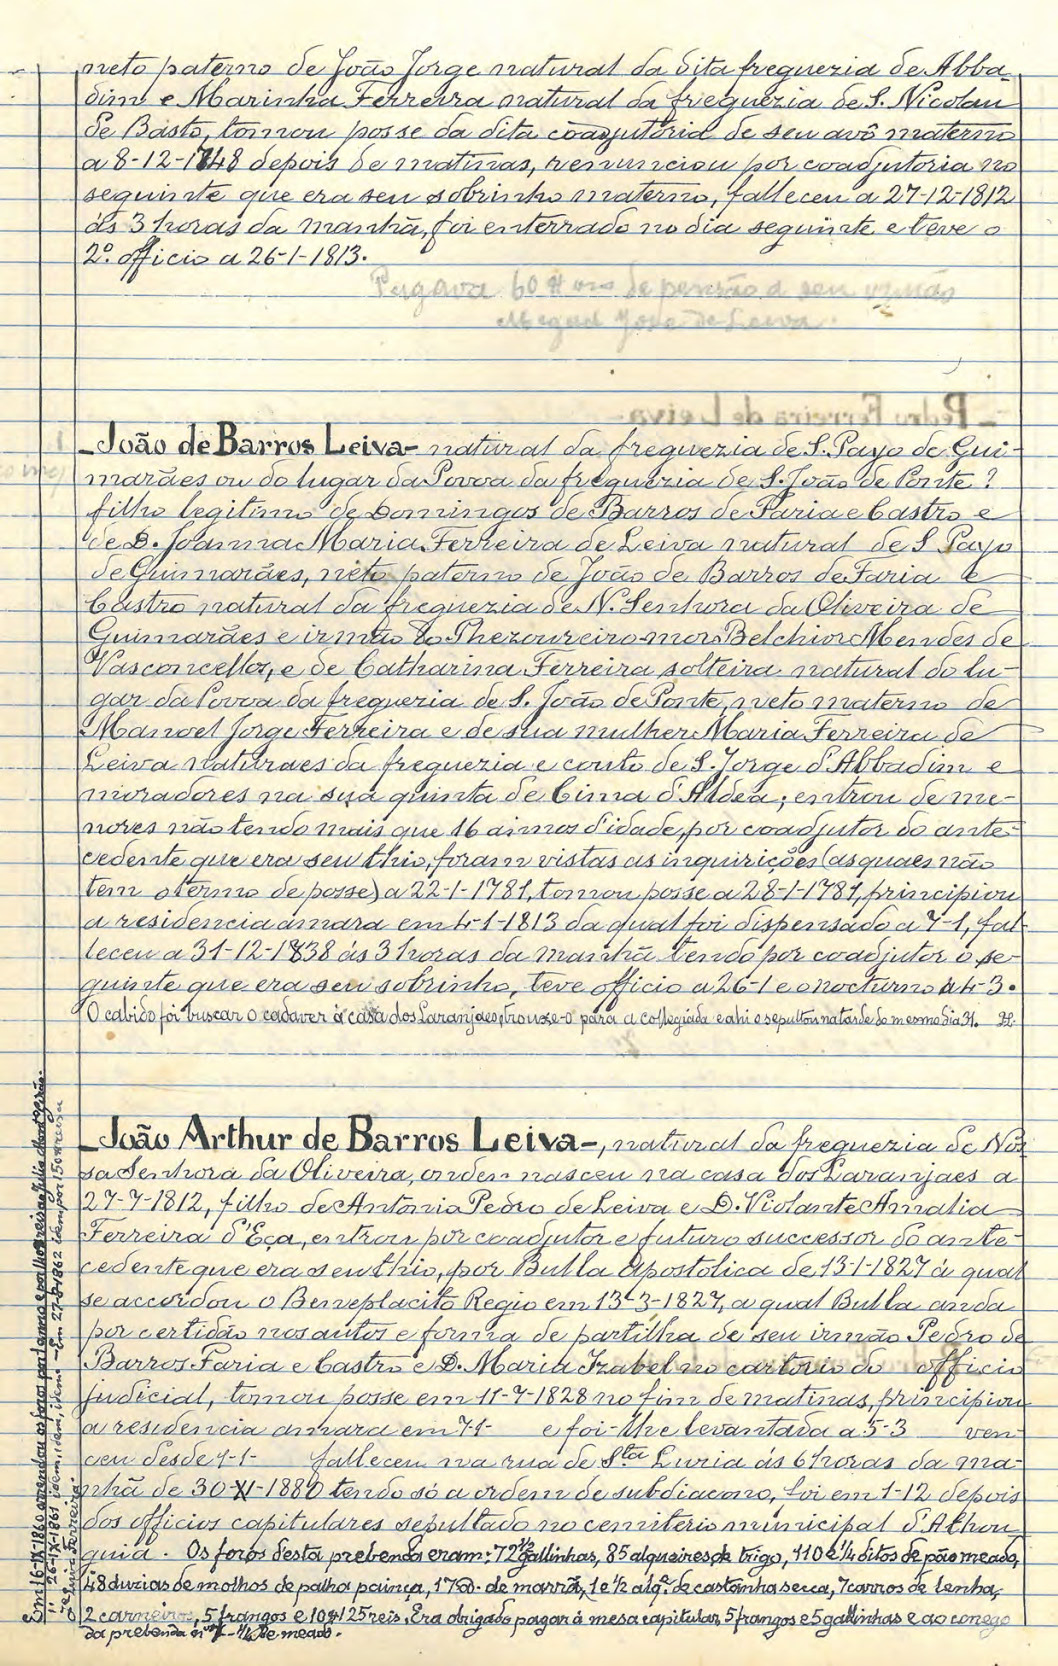 neto paterno de João Jorge natural da dita freguezia de Abba-
dim e Marinha Ferreira natural da freguezia de S. Nicolau
de Basto, tomou posse da dita coadjutoria de seu avô materno
a 8-12-1748 depois de matinas, renunciou por coadjutoria no
seguinte que era seu sobrinho materno, falleceu a 27-12-1812
ás 3 horas da manhã, foi enterrado no dia seguinte e teve o
2º. officio a 26-1-1813.
Pagava 60 de pensão a seu irmão
José de Leiva.
-João de Barros Leiva- natural da freguezia de S. Payo de Gui-
marães ou do lugar da Povoa da freguezia de S. João de Ponte?
filho legitimo de Domingos de Barros de Faria e Castro e
de D. Joanna Maria Ferreira de Leiva natural de S Payo
de Guimarães, neto paterno de João de Barros de Faria e
Castro natural da freguezia de N. Senhora da Oliveira de
Guimarães e irmão do Thezoureiro-mor Belchior Mendes de
Vasconcellos, e de Catharina Ferreira solteira natural do lu-
gar da Povoa da freguezia de S. João de Ponte, neto materno de
Manoel Jorge Ferreira e de sua mulher Maria Ferreira de
Leiva naturaes da freguezia e couto de S. Jorge d'Abbadim e
moradores na sua quinta de Cima d'Aldea; entrou de me-
nores não tendo mais que 16 annos d'idade, por coadjutor do ante-
cedente que era seu thio, foram vistas as inquirições (as quaes não
tem o termo de posse) a 22-1-1781, tomou posse a 28-1-1781, principiou
a residencia amara em 4-1-1813 da qual foi dispensado a 7-1, fal-
leceu a 31-12-1838 ás 3 horas da manhã tendo por coadjutor o se-
guinte que era seu sobrinho, teve officio a 26-1 e o nocturno a 4-3.
O cabido foi buscar o cadaver á casa dos Laranjaes, trouxe-o para a collegiada e ahi o sepultou na tarde do mesmo dia 31.
-João Arthur de Barros Leiva-, natural da freguezia de Nos
sa Senhora da Oliveira, onde nasceu na casa dos Laranjaes a
27-7-1812, filho de Antonio Pedro de Leiva e D. Violante Amalia
Ferreira d'Eça, entrou por coadjutor e futuro successor do ante-
cedente que era seu thio, por Bulla Apostolica de 13-1-1827 á qual
se accordou o Beneplacito Regio em 13-3-1827, a qual Bulla anda
por certidão nos autos e forma de partilha de seu irmão Pedro de
Barros Faria e Castro e D. Maria Izabel no cartorio do officio
judicial, tomou posse em 11-7-1828 no fim de matinas, principiou
a residencia amara em 7-1- e foi-lhe levantada a 5-3 ven-
ceu desde 1-1- falleceu na rua de Sta Luzia ás 6 horas da ma-
nhã de 30-XI-1880 tendo só a ordem de subdiacono, foi em 1-12 depois
dos officios capitulares sepultado no cemiterio municipal d'Athou-
guia. Os foros desta prebenda eram: 72 1/2 gallinhas, 85 alqueires de trigo, 110 e 1/4 ditos de pão meado,
48 duzias de molhos de palha painça, 17 de marrã, 1 e 1/2 alqe. de castanha secca, 7 carros de lenha,
2 carneiros, 5 frangos e 10$125 reis. Era obrigado pagar á mesa capitular, 5 frangos e 5 gallinhas e ao conego
da prebenda de meado.
Em 16-IX-1860 arrendou os foros
" 26-IX-1861 idem, idem, idem. - Em 27-8-1862 idem por